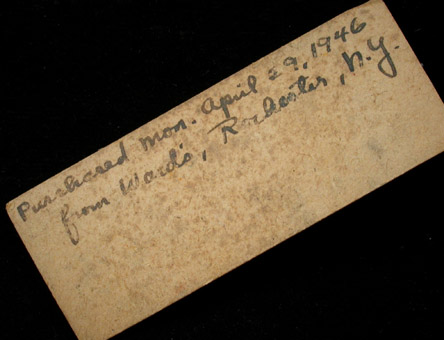 Purchased Mon. April 29, 1946
from Ward's, Rochester, N.Y.